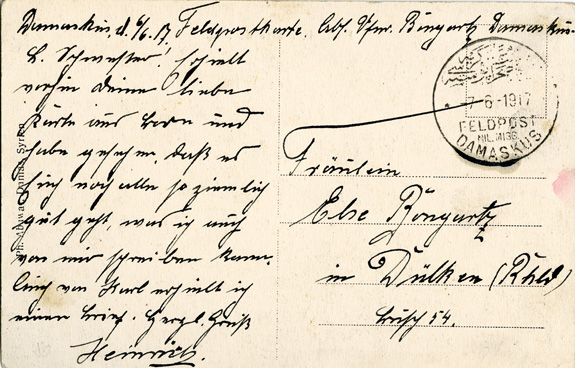 Damaskus, d. 6/6.17. Feldpostkarte. Abs. Vfw. Bongartz Damaskus.
L. Schwester! Erhielt
vorhin deine liebe
Karte aus Bonn und
habe gesehen, daß es
Euch noch alle so ziemlich
gut geht, was ich auch
von mir schreiben kann.
von Karl erhielt ich
einen Brief. Herzl. Gruß
Heinrich.
7-6-1917
FELDPOST
MIL. MISS.
DAMASKUS
Fräulein
Else Bongartz
in Dülken (Rhld)
Busch 54.
Syrien